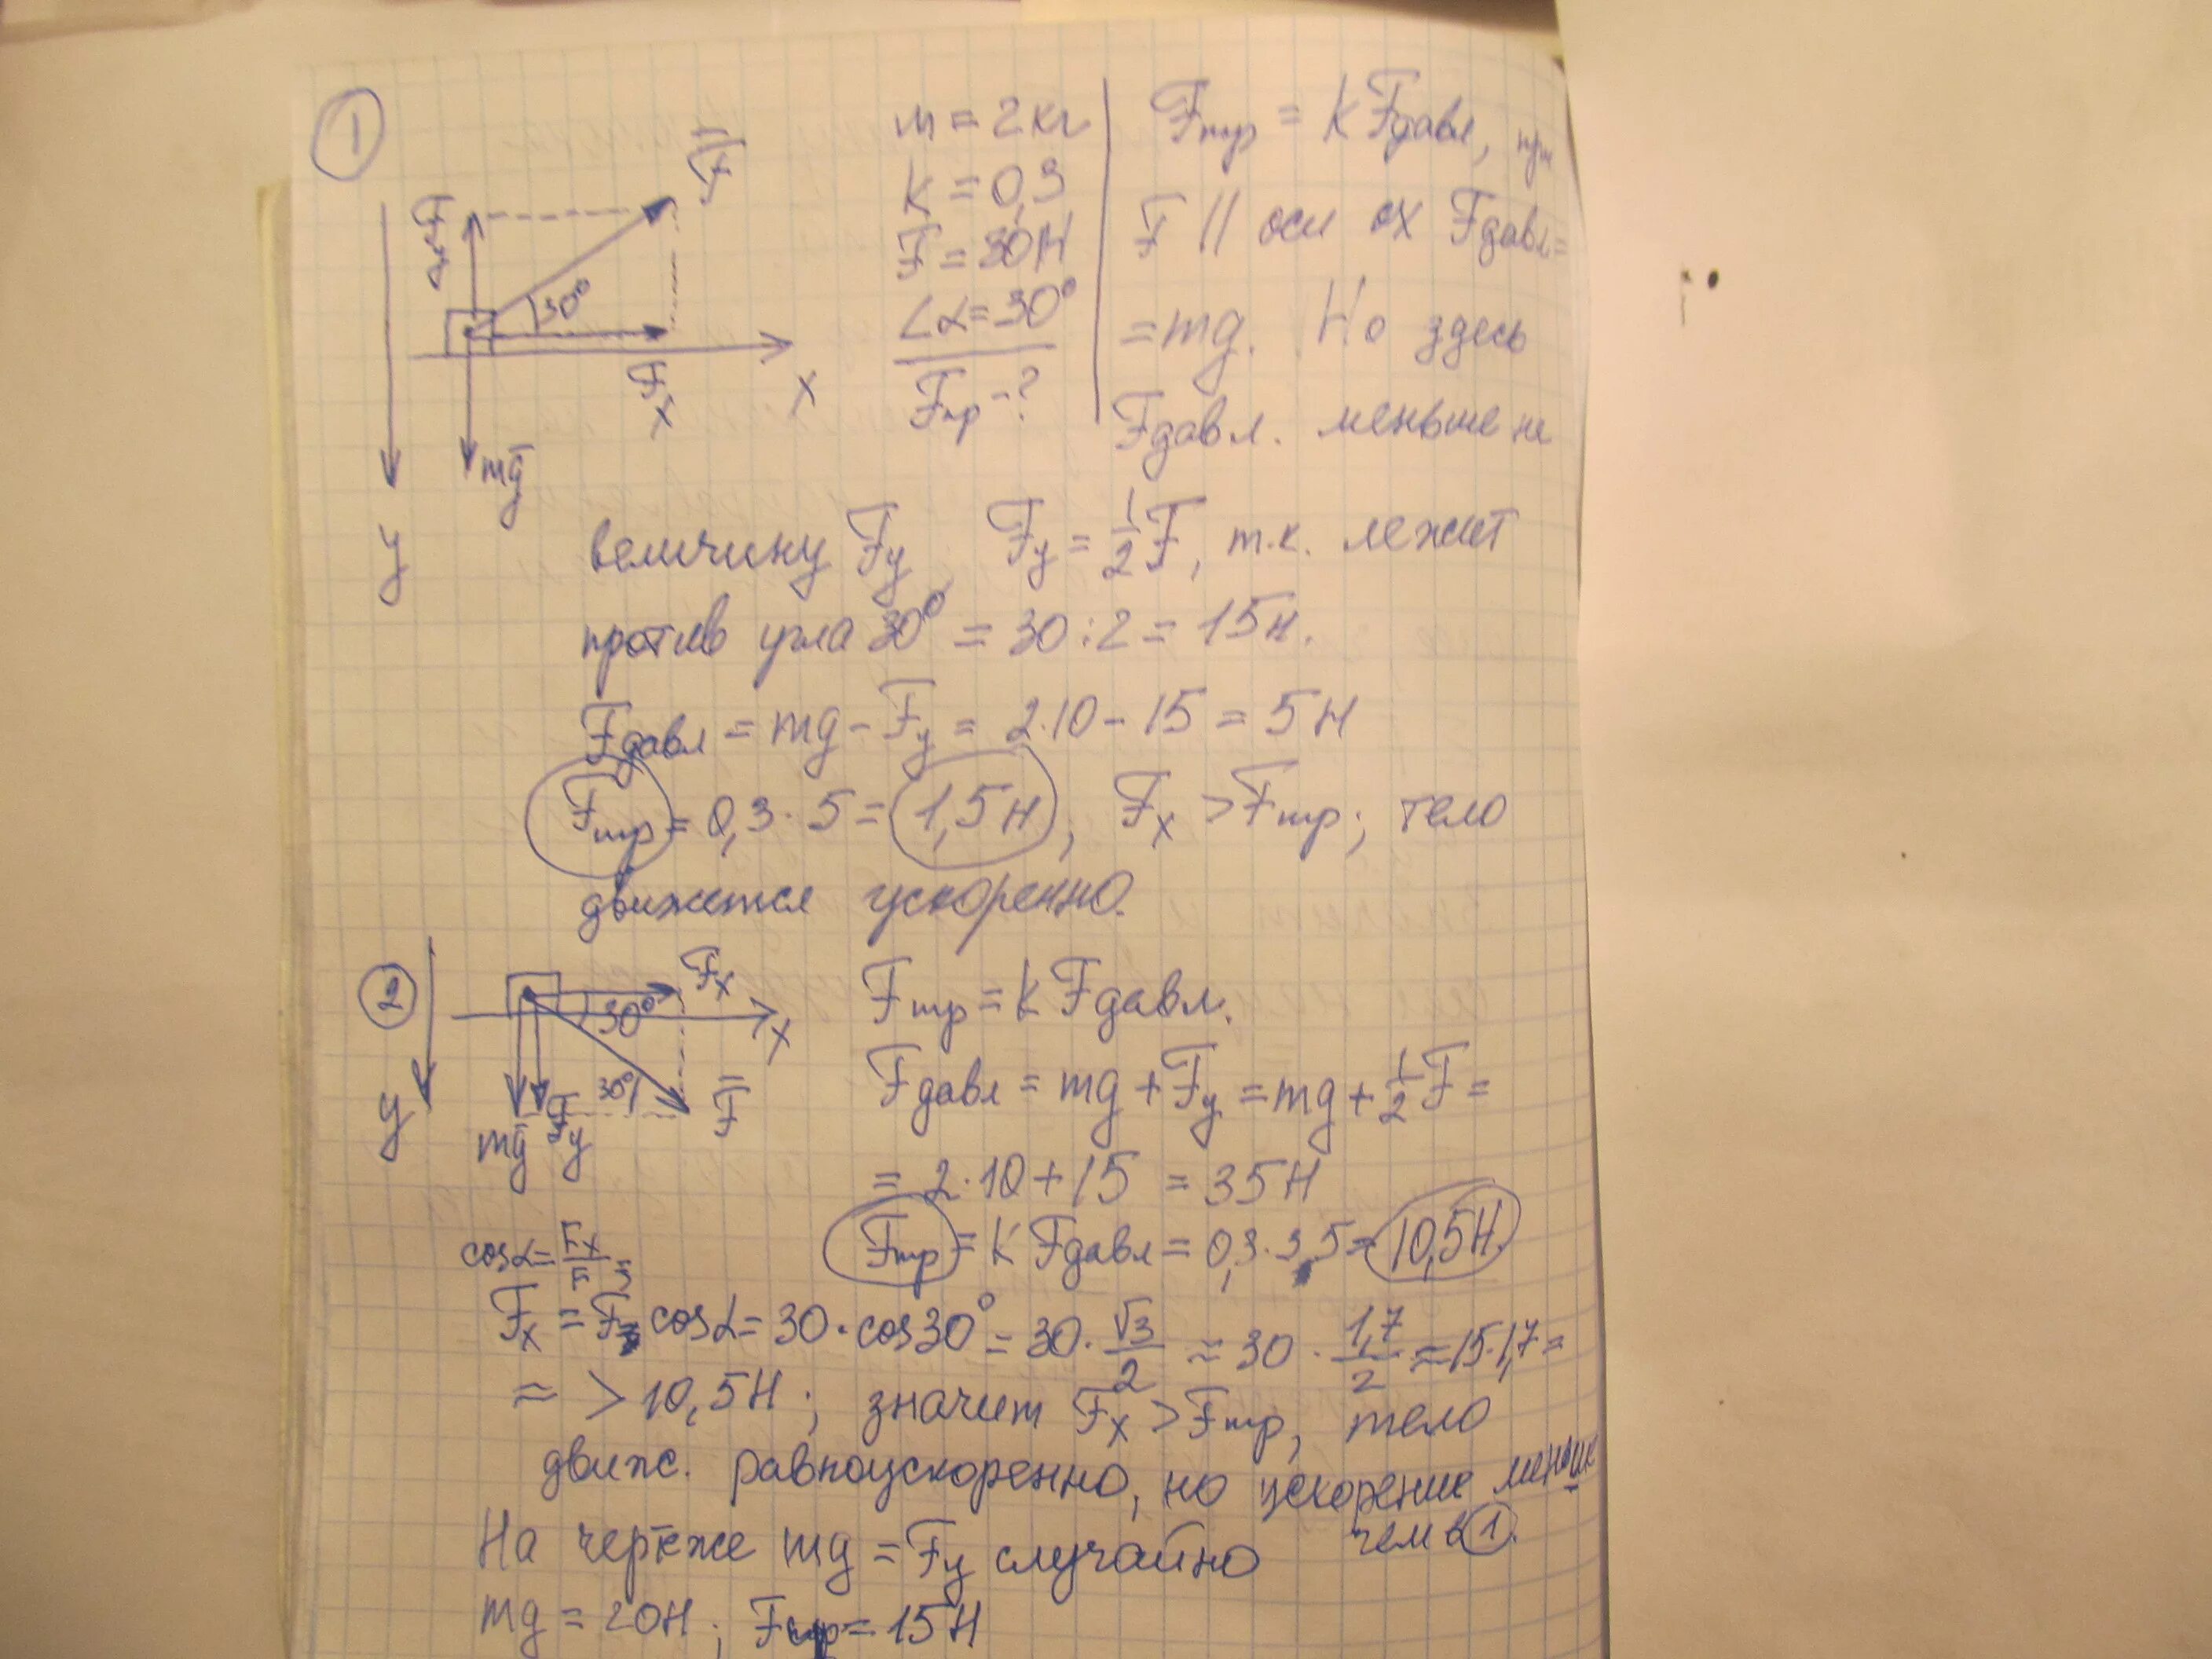 1
F̄
Fу
30°
Fx
x
mḡ
y
m = 2кг
K = 0,3
F = 30Н
∠α = 30°
Fтр - ?
Fтр = K Fдавл, при
F || оси ох Fдавл =
= mg. Но здесь
Fдавл. меньше на
величину Fy, Fy = 1/2 F, т.к. лежит
против угла 30° = 30 : 2 = 15Н.
Fдавл = mg - Fy = 2·10 - 15 = 5Н
Fтр = 0,3 · 5 = 1,5Н, Fx > Fтр; тело
движется ускоренно.
2
Fx
30°
x
30°
F̄
y
mḡ Fy
Fтр = K Fдавл.
Fдавл = mg + Fy = mg + 1/2 F =
= 2·10 + 15 = 35Н
Fтр = K Fдавл = 0,3·35 = 10,5Н.
cosα = Fx/F =
Fx = F cosα = 30·cos30° = 30·√3/2 ≈ 30·1,7/2 ≈ 15·1,7 =
≈ > 10,5Н; значит Fx > Fтр, тело
движ. равноускоренно, но ускорение меньше
чем в 1.
На чертеже mg = Fy случайно
mg = 20Н; = 15Н